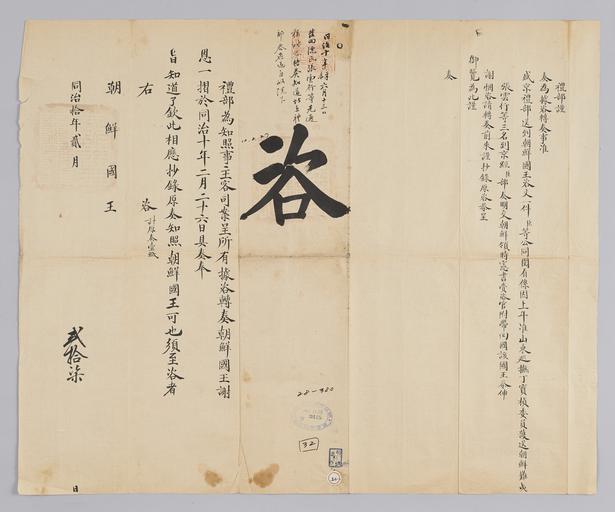 禮部謹
奏為據咨轉奏事准
盛京禮部送到朝鮮國王咨文一件臣等公同閱看係因上年准山東巡撫丁寶楨委員護送朝鮮難民
張雲行等三名到京經臣部奏明交朝鮮領時憲書賫咨官附帶回國該國王恭伸
謝悃咨請轉奏前來謹抄錄原咨恭呈
御覽為此謹
奏
咨
禮部為知照事主客司案呈所有據咨轉奏朝鮮國王謝
恩一摺於同治十年二月二十六日具奏奉
旨知道了欽此相應抄錄原奏知照朝鮮國王可也須至咨者
右咨 計原奏壹紙
朝鮮國王
同治拾年貳月
貳拾柒
日
28-480
32